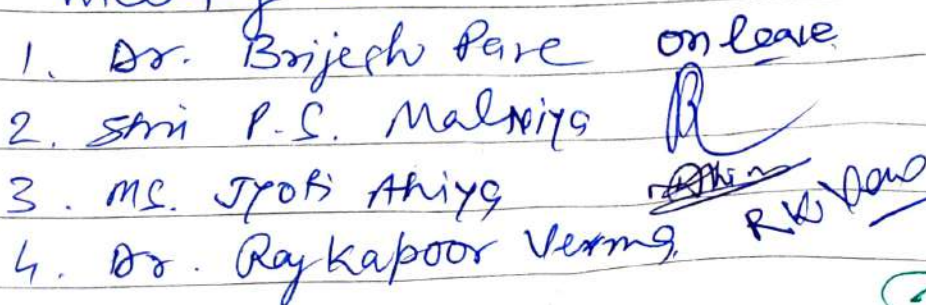 1. Dr. Brijesh Pare on leave
2. Shri P.S. Malviya
3. Ms. Jyoti Ahiya
4. Dr. Rajkapoor Verma